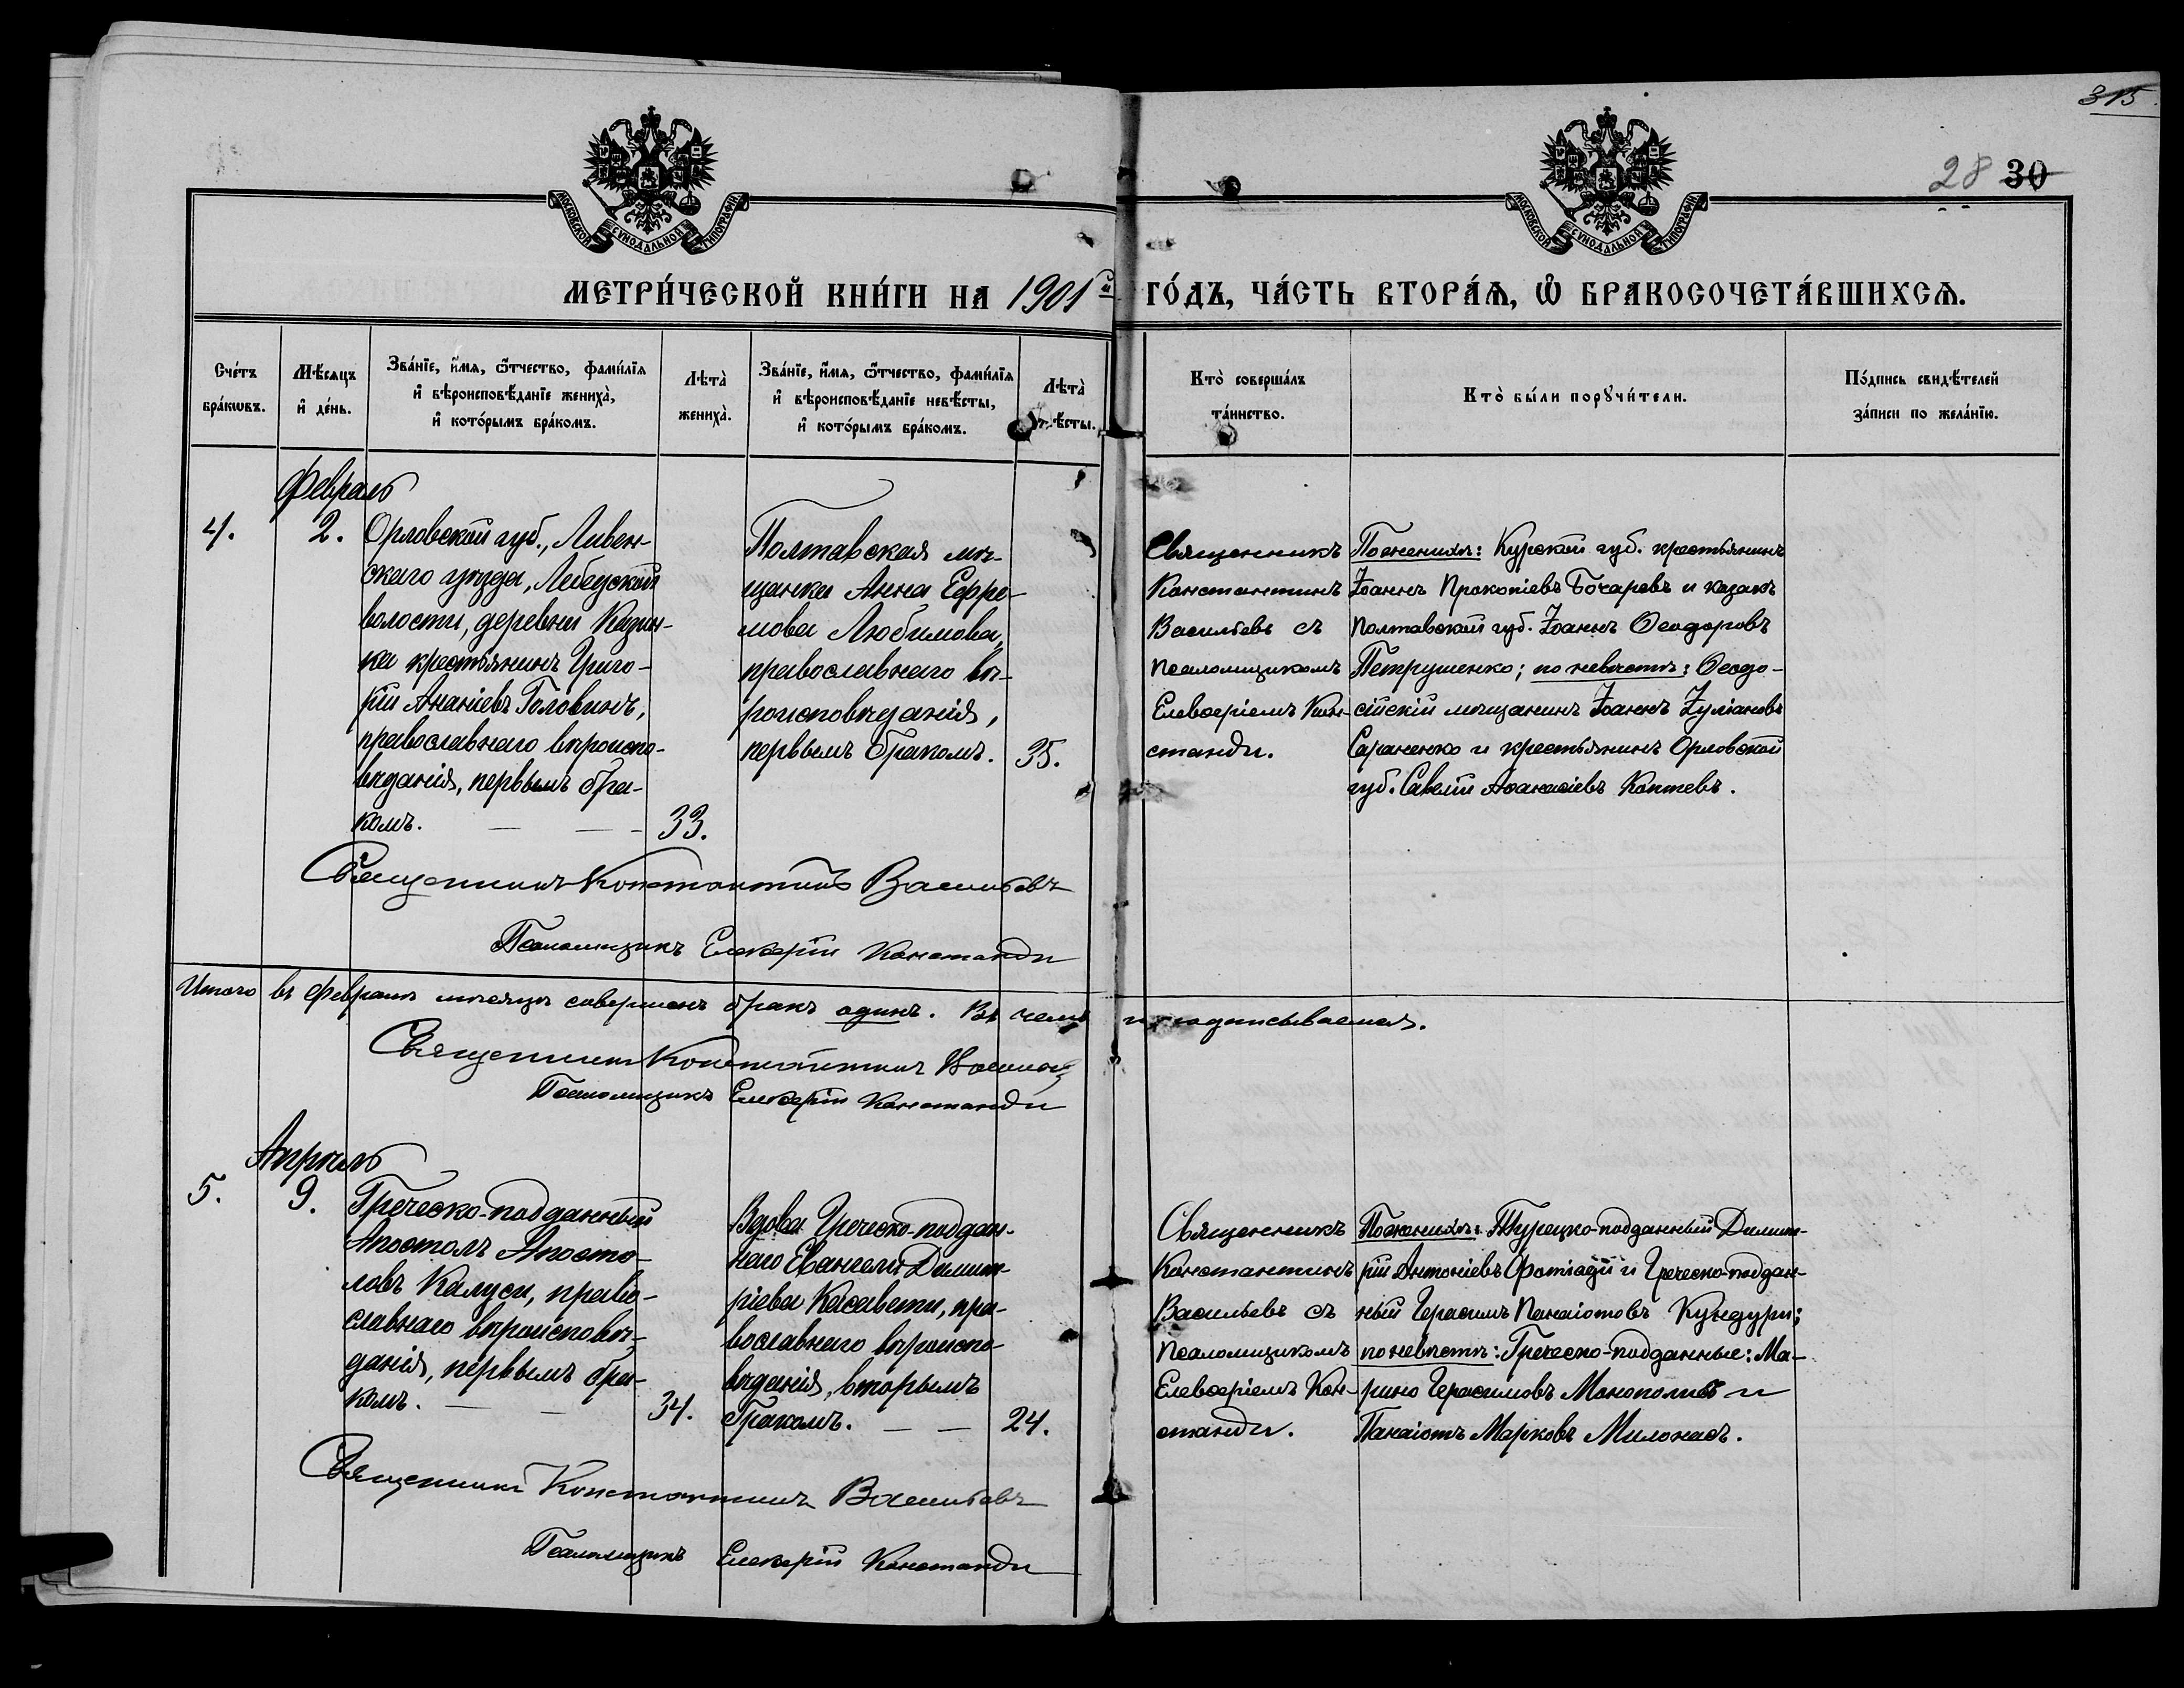 315
28 30
МОСКОВСКОЙ СѴНОДАЛЬНОЙ ТИПОГРАФІИ
МОСКОВСКОЙ СѴНОДАЛЬНОЙ ТИПОГРАФІИ
МЕТРИ́ЧЕСКОЙ КНИ́ГИ НА 1901й ГО́ДЪ, ЧА́СТЬ ВТОРА́Я, Ѽ БРАКОСОЧЕТА́ВШИХСЯ.
Сче́тъ
бра́кѡвъ.
Мѣ́сяцъ
и҆ де́нь.
Зва́нїе, и҆́мя, ѻ҆́тчество, фами́лїя
и҆ вѣроисповѣ́данїе жениха̀,
и҆ кото́рымъ бра́комъ.
Лѣта̀
жениха̀.
Зва́нїе, и҆́мя, ѻ҆́тчество, фами́лїя
и҆ вѣроисповѣ́данїе невѣ́сты,
и҆ кото́рымъ бра́комъ.
Лѣта̀
ѣсты.
Кто̀ соверша́лъ
та́инство.
Кто̀ бы́ли порꙋчи́тели.
По́дпись свидѣ́телей
за́писи по жела́нїю.
Февраль
4.
2.
Орловской губ., Ливен-
скаго уѣзда, Лебедской
волости, деревни Казин-
ка крестьянинъ Григо-
рій Ананіевъ Головинъ,
православнаго вѣроиспо-
вѣданія, первымъ бра-
комъ. — — — 33.
Полтавская мѣ-
щанка Анна Ефре-
мова Любимова,
православнаго вѣ-
роисповѣданія,
первымъ бракомъ. 35.
Священникъ
Константинъ
Васильевъ съ
псаломщикомъ
Елевѳеріемъ Кон-
станди.
По женихѣ: Курской губ. крестьянинъ
Іоаннъ Прокопіевъ Бочаровъ и казакъ
Полтавской губ. Іоаннъ Ѳеодоровъ
Петрушенко; по невѣстѣ: Ѳеодо-
сійскій мѣщанинъ Іоаннъ Іуліановъ
Сараненко и крестьянинъ Орловской
губ. Савелій Аѳанасіевъ Коптевъ.
Священникъ Константинъ Васильевъ
Псаломщикъ Елевѳерій Константи
Итого въ Февралѣ мѣсяцѣ совершенъ бракъ одинъ. Въ чемъ и подписываемся.
Священникъ Константинъ Васильевъ
Псаломщикъ Елевѳерій Констанди
Апрѣль
5.
9.
Греческо-подданный
Апостолъ Апосто-
ловъ Калуси, право-
славнаго вѣроисповѣ-
данія, первымъ бра-
комъ. — — 34.
Вдова Греческо-поддан-
наго Евангелія Димит-
ріева Касавети, пра-
вославнаго вѣроиспо-
вѣданія, вторымъ
бракомъ. — — 24.
Священникъ
Константинъ
Васильевъ съ
псаломщикомъ
Елевѳеріемъ Кон-
станди.
По женихѣ: Турецко-подданный Димит-
рій Антоніевъ Фотіади и Греческо-поддан-
ный Герасимъ Панаіотовъ Кундури;
по невѣстѣ: Греческо-подданные: Ма-
рино Герасимовъ Монополисъ и
Панаіотъ Марковъ Милонасъ.
Священникъ Константинъ Васильевъ
Псаломщикъ Елевѳерій Констанди